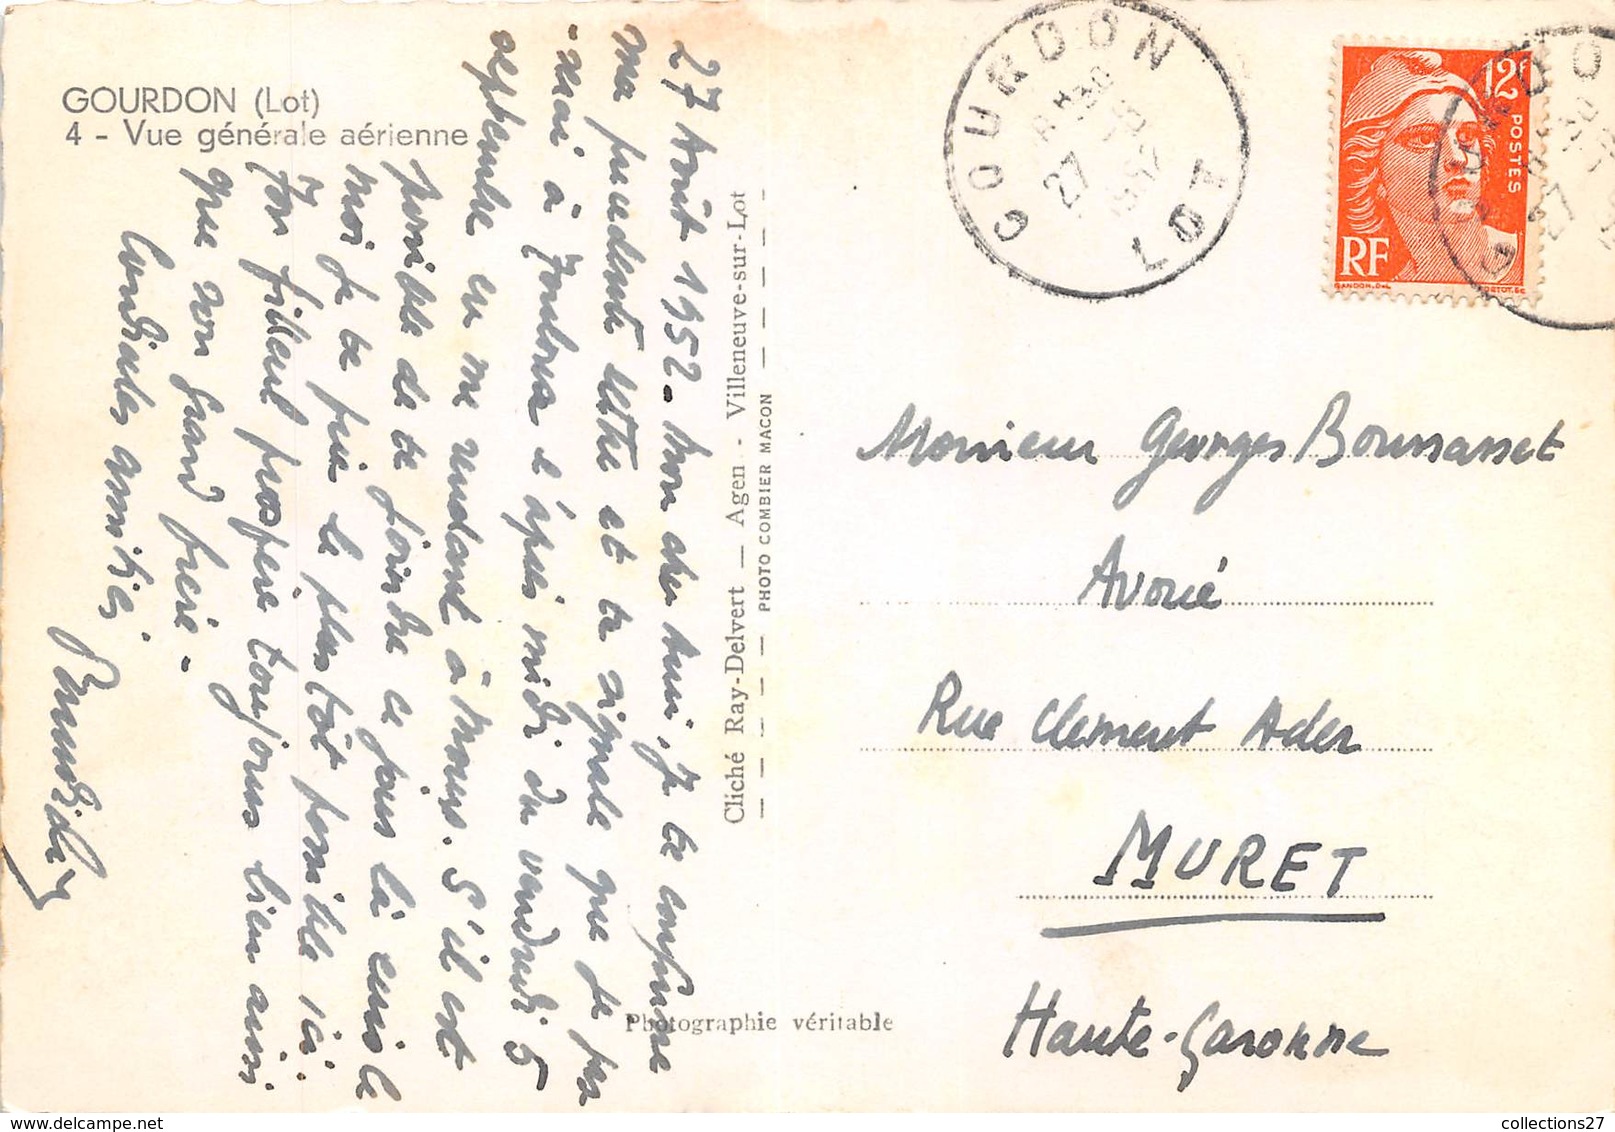 GOURDON (Lot)
4 - Vue générale aérienne
27 Août 1952 - Mon cher ami, je te confirme
ma précédente lettre et te signale que je pas
-serai à Toulouse l'après midi du vendredi 5
septembre en me rendant à Nous. S'il est
possible de te joindre ce jour là écris le
moi je te prie le plus tôt possible ici.
Ton filleul prospère toujours bien ainsi
que son grand frère -
Cordiales amitiés
Cliché Ray-Delvert — Agen - Villeneuve-sur-Lot
PHOTO COMBIER MACON
Photographie véritable
GOURDON
LOT
27
1952
12F
POSTES
RF
GANDON.DEL
GOURDON
27
Monsieur Georges Boussasset
Avoué
Rue Clement Ader
MURET
Haute-Garonne
collections27